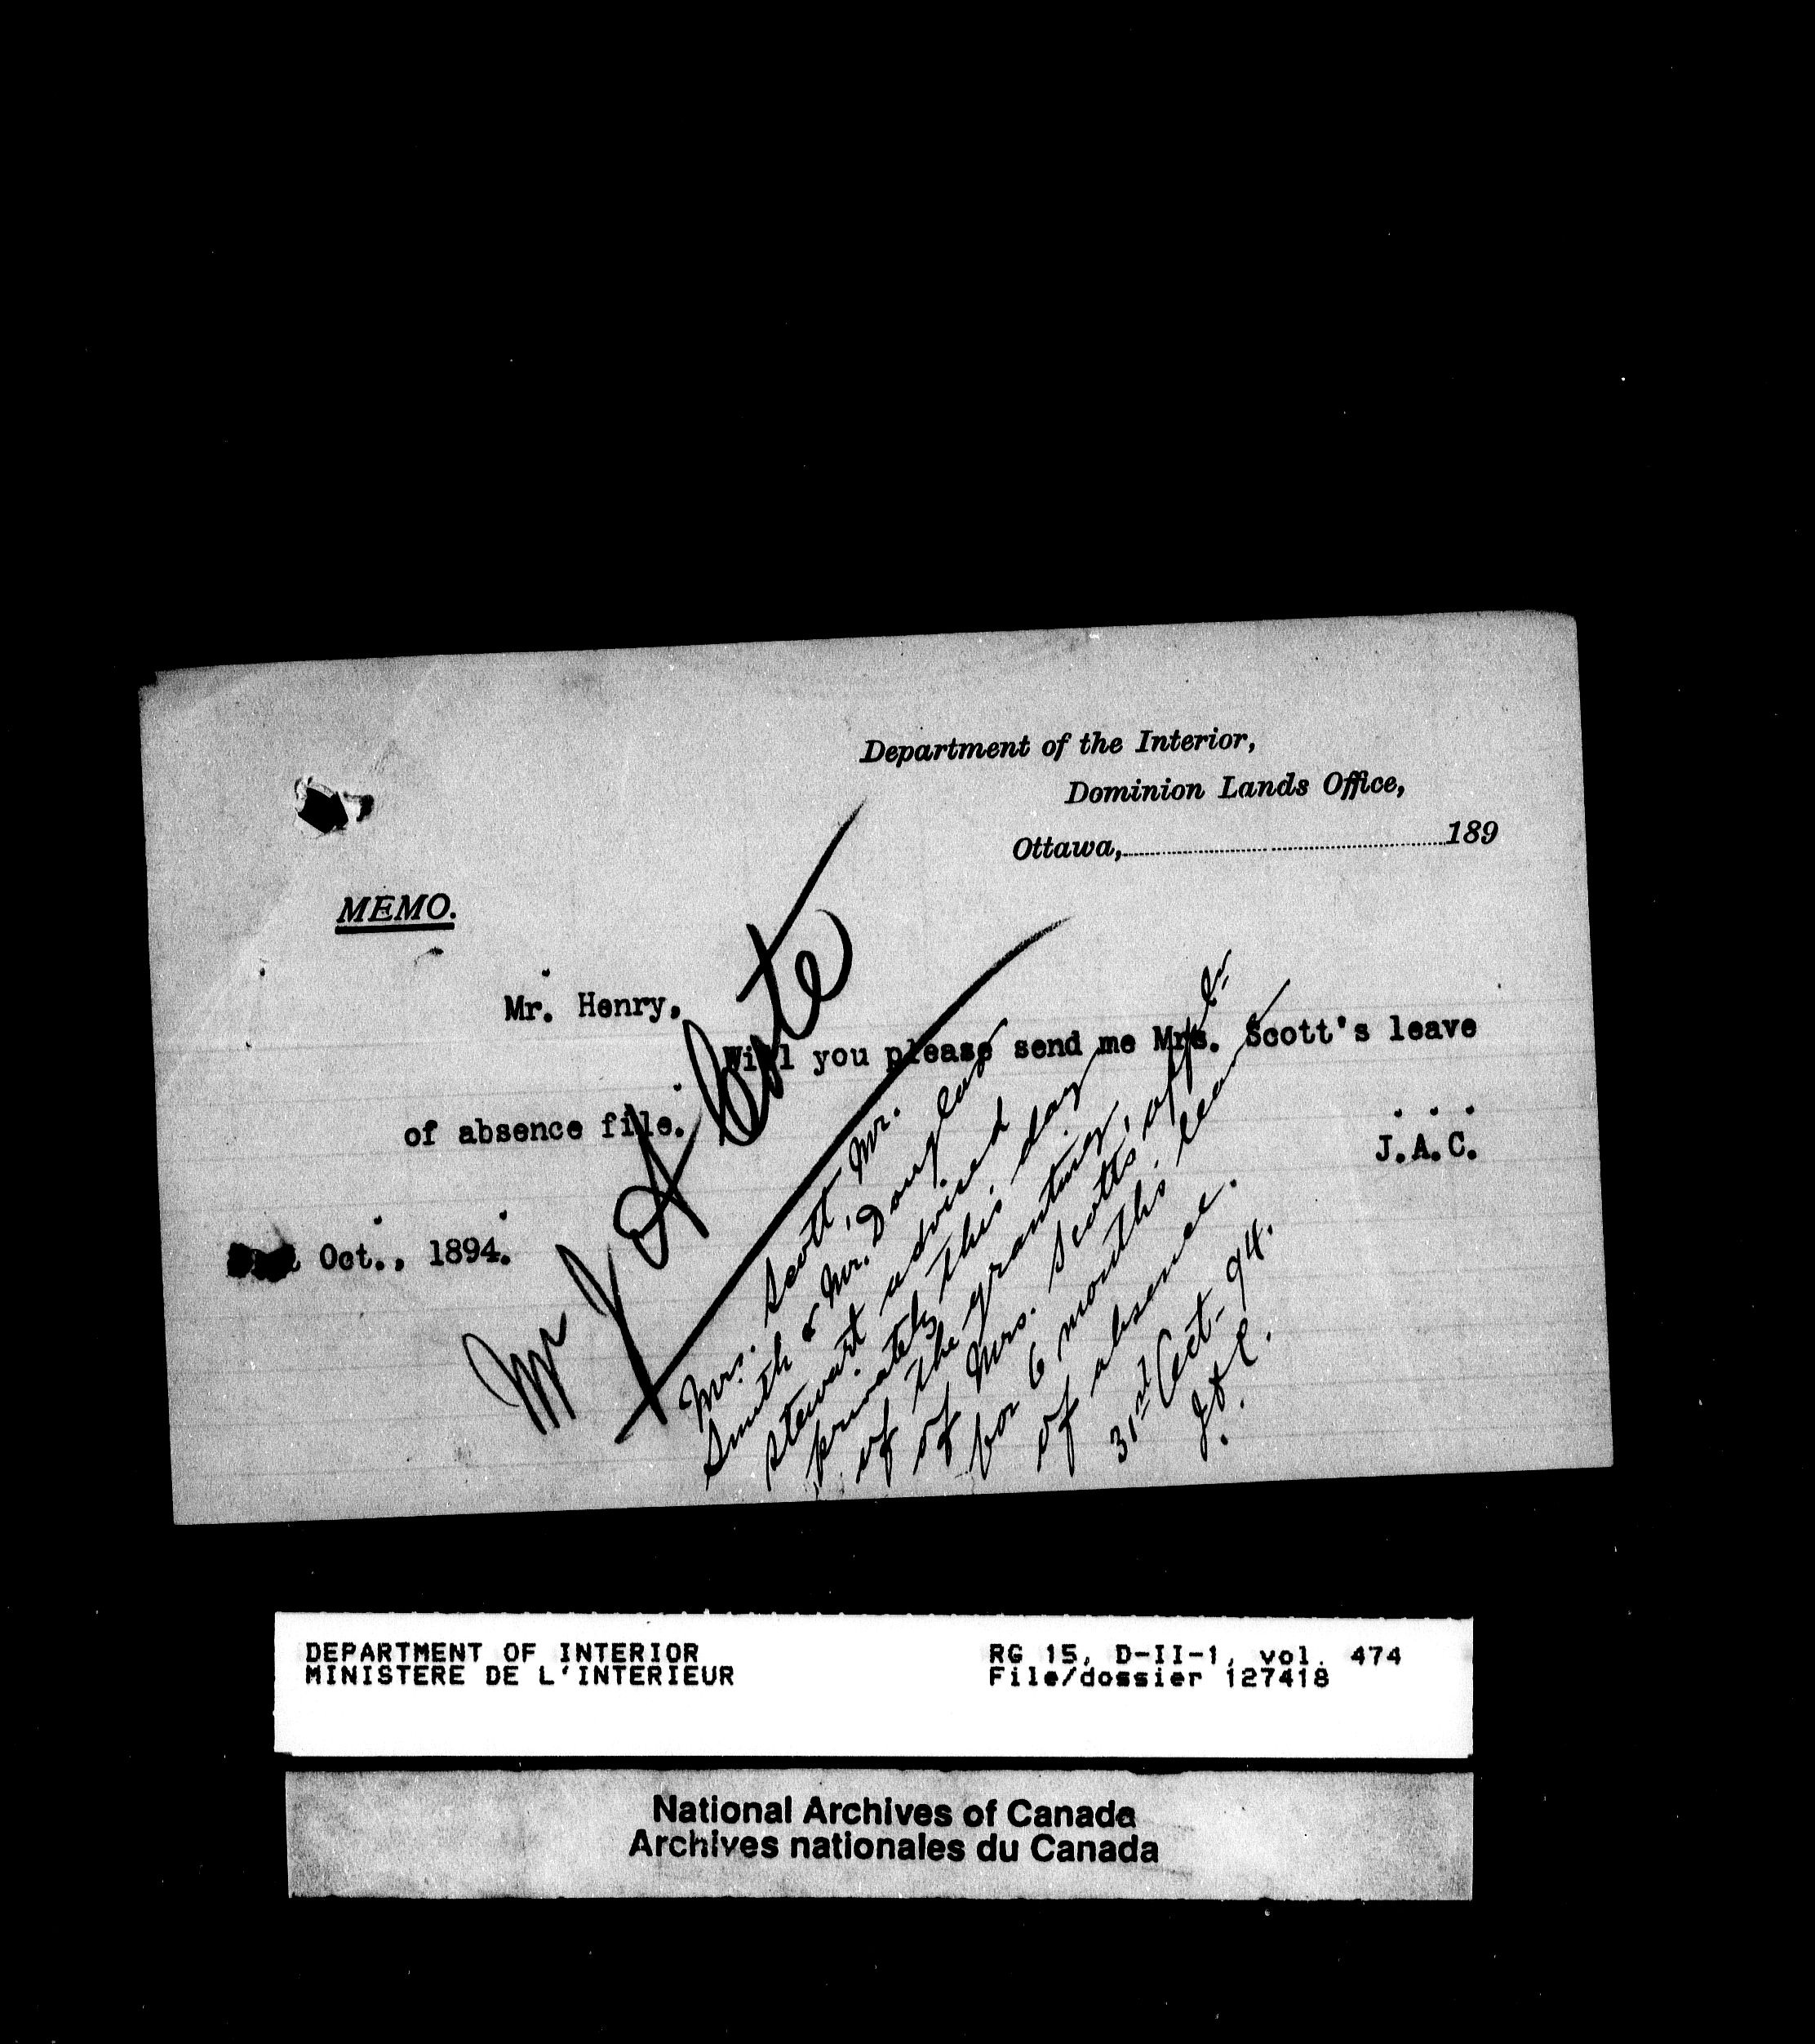 Department of the Interior,
Dominion Lands Office,
Ottawa, 189
MEMO.
Mr. Henry,
Will you please send me Mrs. Scott's leave
of absence file.
J.A.C.
Oct., 1894.
Mr J A Cote
Mrs. Scott, Mr.
Smith & Mr. Douglas
Stewart advised
privately this day
of the granting,
of Mrs. Scotts
for 6 months leave
of absence.
31st Oct- 94.
DEPARTMENT OF INTERIOR
MINISTERE DE L'INTERIEUR
RG 15, D-II-1, vol. 474
File/dossier 127418
National Archives of Canada
Archives nationales du Canada